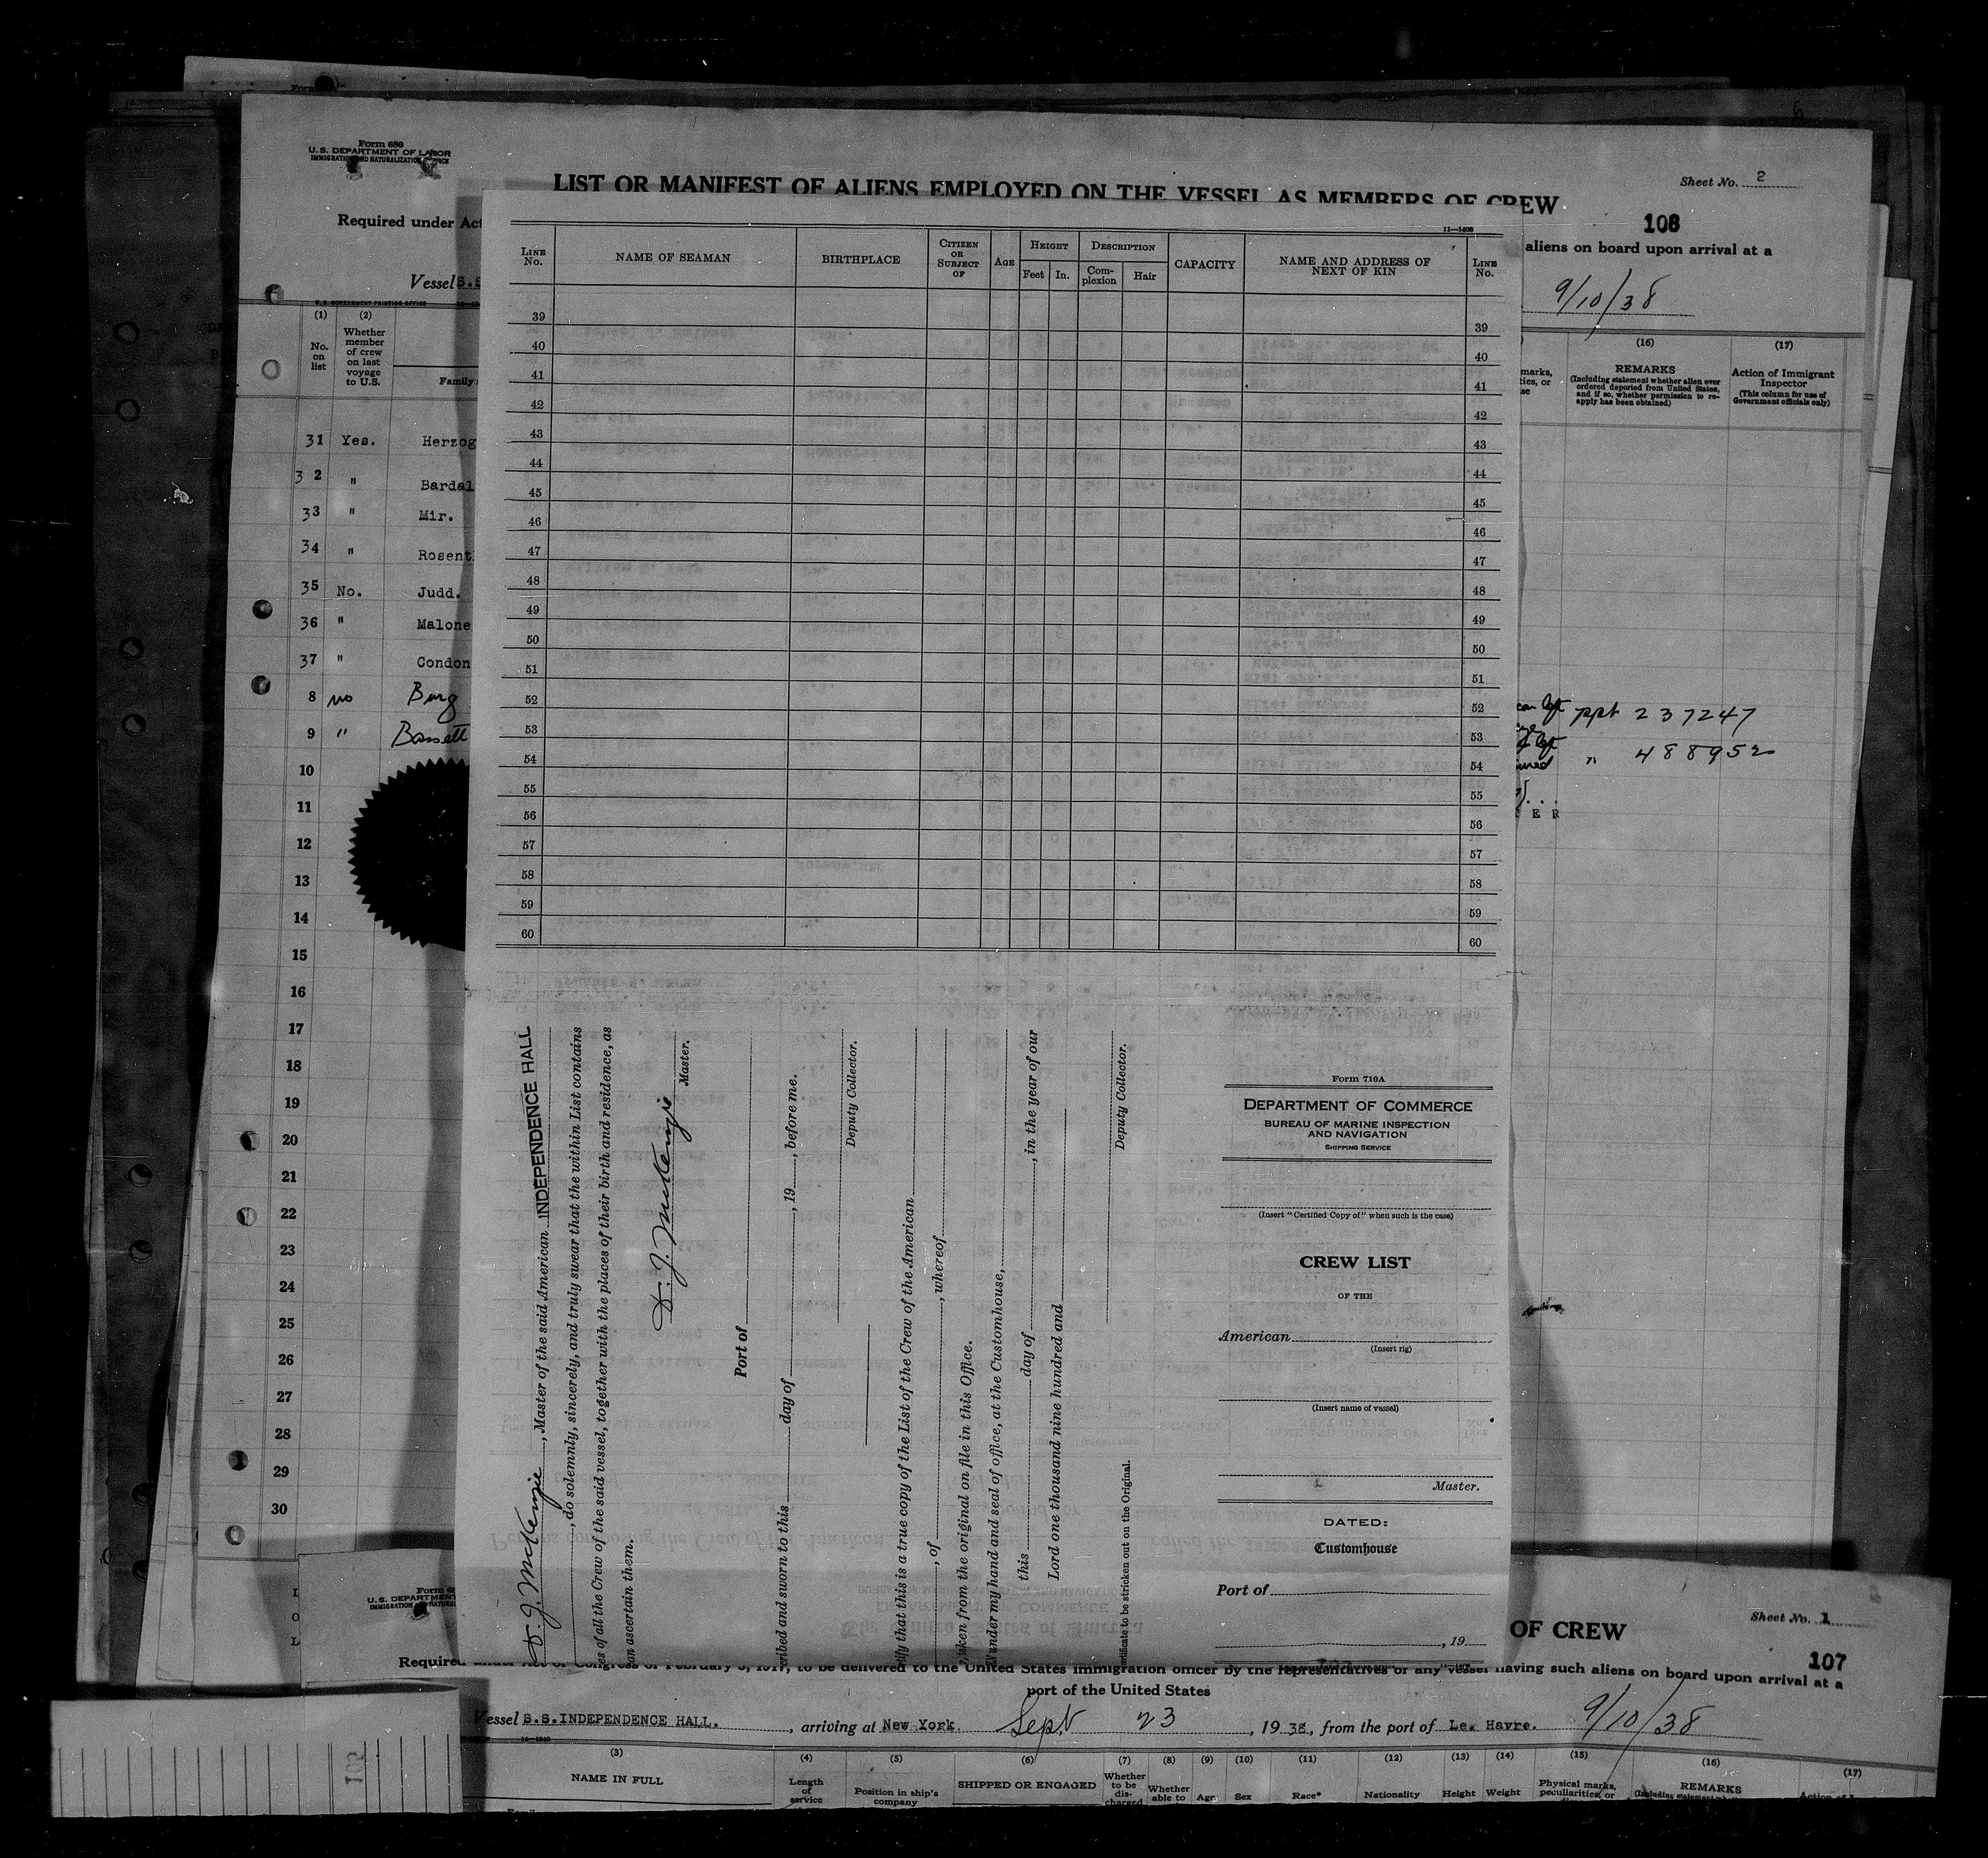 Form 680
U.S. DEPARTMENT OF LABOR
IMMIGRATION AND NATURALIZATION SERVICE
LIST OR MANIFEST OF ALIENS EMPLOYED ON THE VESSEL AS MEMBERS OF CREW
Sheet No. 2
108
Required under Act
aliens on board upon arrival at a
Vessel S.S
9/10/38
U.S. GOVERNMENT PRINTING OFFICE
(1) (2)
No. on list
Whether member of crew on last voyage to U.S.
Family
(16) (17)
marks,
ties, or
REMARKS
(Including statement whether alien ever ordered deported from United States, and if so, whether permission to reapply has been obtained)
Action of Immigrant Inspector
(This column for use of Government officials only)
31 Yes. Herzog
32 " Bardal
33 " Mir.
34 " Rosent
35 No. Judd.
36 " Malone
37 " Condon
8 no Burg
ppt 237247
9 " Bassett
" 488952
E R
10
11
12
13
14
15
16
17
18
19
20
21
22
23
24
25
26
27
28
29
30
11—1408
LINE No.
NAME OF SEAMAN
BIRTHPLACE
CITIZEN OR SUBJECT OF
AGE
HEIGHT
Feet In.
DESCRIPTION
Complexion Hair
CAPACITY
NAME AND ADDRESS OF NEXT OF KIN
LINE No.
39 39
40 40
41 41
42 42
43 43
44 44
45 45
46 46
47 47
48 48
49 49
50 50
51 51
52 52
53 53
54 54
55 55
56 56
57 57
58 58
59 59
60 60
D. J. McKenzie, Master of the said American INDEPENDENCE HALL
, do solemnly, sincerely, and truly swear that the within List contains
es of all the Crew of the said vessel, together with the places of their birth and residence, as
an ascertain them.
D. J. McKenzie
Master.
Port of
ribed and sworn to this day of , 19 , before me.
Deputy Collector.
tify that this is a true copy of the List of the Crew of the American
, of , whereof
taken from the original on file in this Office.
under my hand and seal of office, at the Customhouse,
this day of , in the year of our
Lord one thousand nine hundred and
Deputy Collector.
rtificate to be stricken out on the Original.
Form 710A
DEPARTMENT OF COMMERCE
BUREAU OF MARINE INSPECTION
AND NAVIGATION
SHIPPING SERVICE
(Insert "Certified Copy of" when such is the case)
CREW LIST
OF THE
American
(Insert rig)
(Insert name of vessel)
Master.
DATED:
Customhouse
Port of
, 19
U.S. DEPARTMENT
OF CREW
Sheet No. 1
107
Required under Act of Congress of February 5, 1917, to be delivered to the United States immigration officer by the representatives of any vessel having such aliens on board upon arrival at a
port of the United States
Vessel S.S.INDEPENDENCE HALL. , arriving at New York. Sept 23 , 1938, from the port of Le. Havre. 9/10/38
(3) (4) (5) (6) (7) (8) (9) (10) (11) (12) (13) (14) (15) (16) (17)
NAME IN FULL
Length of service
Position in ship's company
SHIPPED OR ENGAGED
Whether to be discharged
Whether able to
Age
Sex
Race*
Nationality
Height
Weight
Physical marks, peculiarities, or
REMARKS
(Including statement
Action of
102